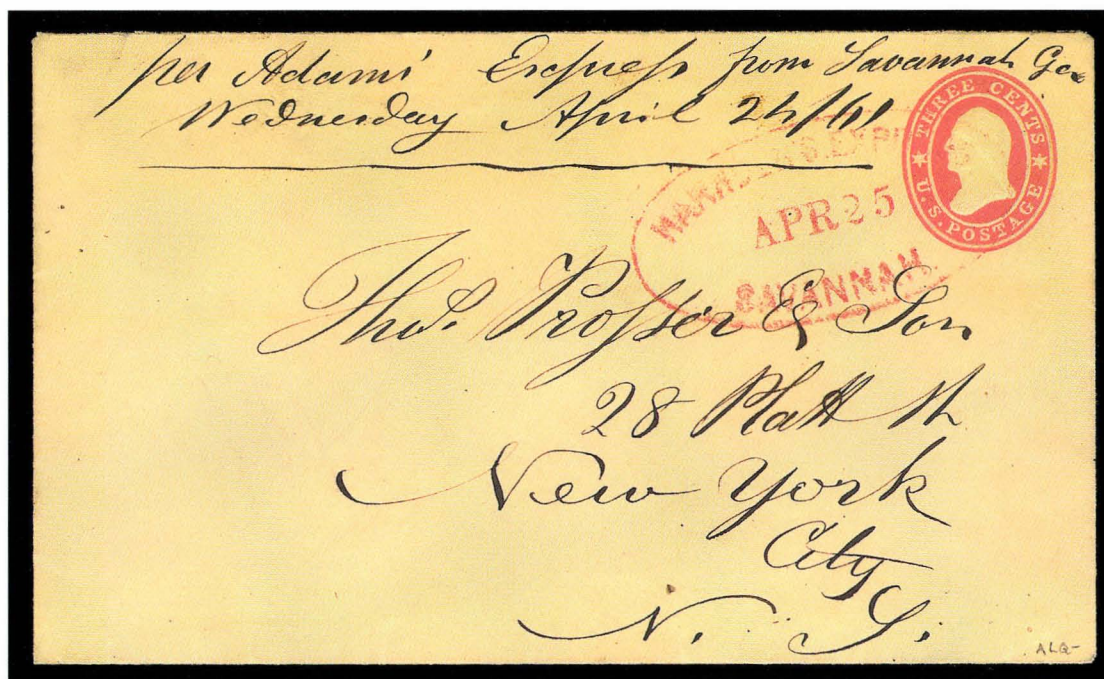 per Adams' Express from Savannah Geo
Wednesday April 24/61
THREE CENTS
U.S. POSTAGE
APR 25
SAVANNAH
Thos. Prosser & Son
28 Platt St
New York
City
N. Y.
ALQ-